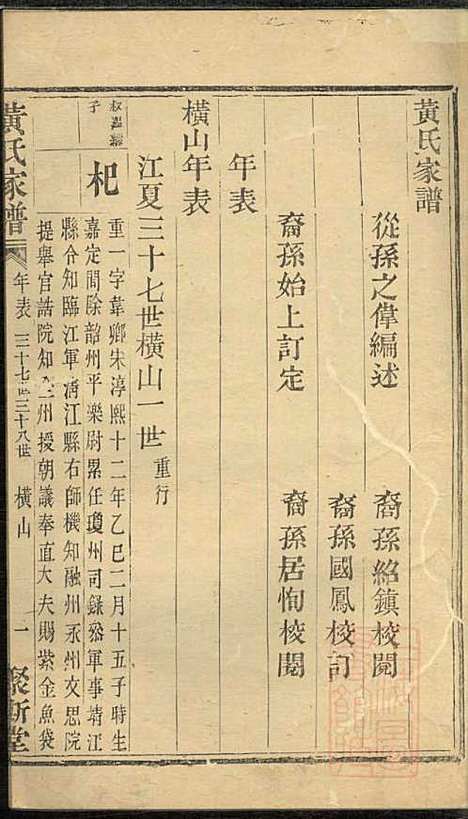 黃氏家譜
從孫之偉編述
裔孫紹鎮校閱
裔孫國鳳校訂
裔孫始上訂定
裔孫居恂校閱
年表
橫山年表
江夏三十七世橫山一世 重行
子
杞
重一字葦鄉朱淳熙十二年乙巳二月十五子時生
嘉定間除韶州平樂尉累任瓊州司錄叅軍事靖江
縣令知臨江軍淸江縣右師機知融州永州文思院
提舉官誥院知 州授朝議奉直大夫賜紫金魚袋
黃氏家譜
年表 三十七世三十八世 橫山
一
聚新堂